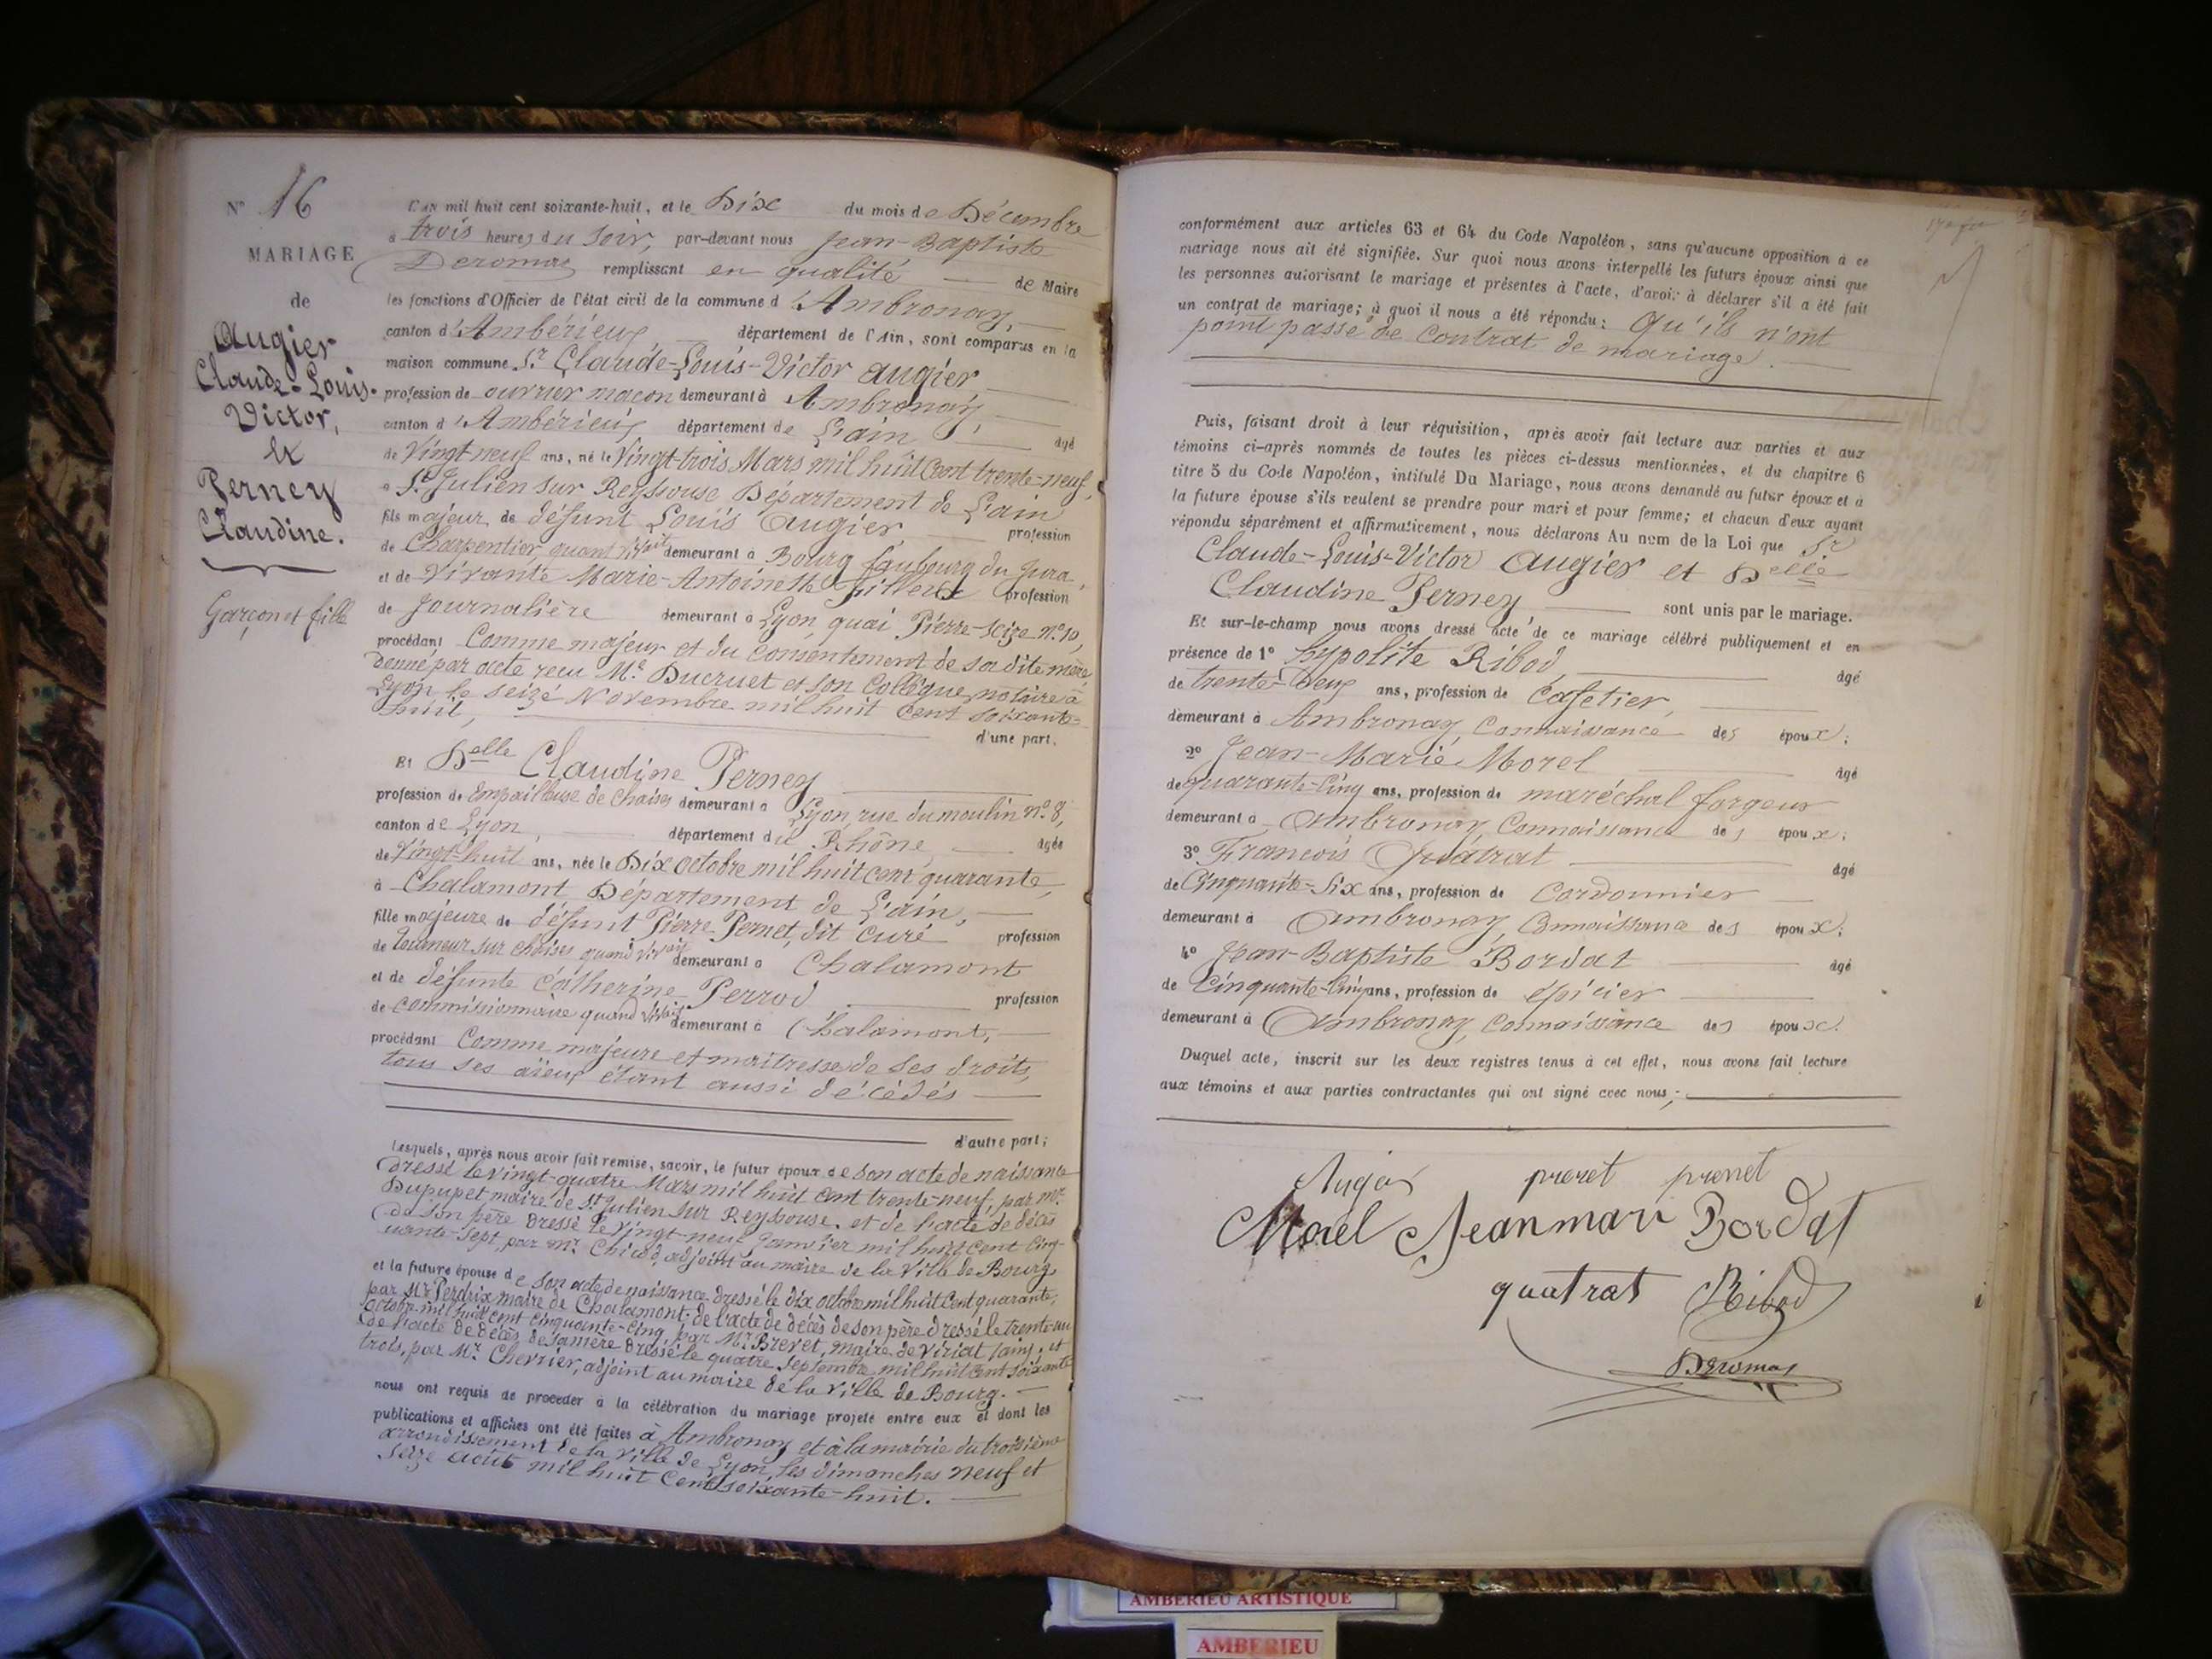 N° 16
MARIAGE
de
Augier
Claude-Louis-
Victor,
&
Perney
Claudine.
Garçon et fille
L'AN mil huit cent soixante-huit, et le Dix du mois de Décembre
à trois heures du soir, par-devant nous Jean-Baptiste
Deromas remplissant en qualité de Maire
les fonctions d'Officier de l'état civil de la commune d'Ambronay,
canton d'Ambérieux département de l'Ain, sont comparus en la
maison commune Sr Claude-Louis-Victor Augier
profession de ouvrier maçon demeurant à Ambronay,
canton d'Ambérieux département de L'ain âgé
de Vingt neuf ans, né le Vingt-trois Mars mil huit Cent trente-neuf,
à St Julien sur Reyssouse, Département de L'ain
fils majeur de défunt Louis Augier profession
de Charpentier, quand vivait demeurant à Bourg faubourg du Jura,
et de Vivante Marie-Antoinette profession
de Journalière demeurant à Lyon, quai Pierre-Seize n° 10,
procédant Comme majeur et du consentement de sa dite mère
donné par acte reçu Me Ducruet et son Collègue, notaire à
Lyon le seize Novembre mil huit Cent soixante-
huit,
d'une part.
Et Delle Claudine Perney
profession de Empailleuse de chaises demeurant à Lyon, rue du moulin n° 8,
canton de Lyon, département du Rhône âgée
de Vingt-huit ans, née le Dix octobre mil huit cent quarante,
à Chalamont, Département de L'ain,
fille majeure de défunt Pierre Pernet, dit curé profession
de Tourneur sur chaises quand vivait demeurant à Chalamont
et de défunte Catherine Perrod profession
de commissionnaire quand vivait demeurant à Chalamont,
procédant Comme majeure et maitresse de ses droits,
tous ses aïeux étant aussi décédés
d'autre part;
Lesquels, après nous avoir fait remise, savoir, le futur époux de son acte de naissance
dressé le vingt-quatre Mars mil huit cent trente-neuf, par mr
Dupupet maire de St Julien sur Reyssouse, et de l'acte de décès
de son père dressé le Vingt-neuf Janvier mil huit cent Cinq-
uante-sept, par mr adjoint au maire de la Ville de Bourg
et la future épouse de son acte de naissance dressé le dix octobre mil huit Cent quarante,
par Mr Perdrix maire de Chalamont; de l'acte de décès de son père dressé le trente-un
octobre mil huit cent cinquante-cinq, par Mr Brevet, maire de Viriat (ain), et
de l'acte de décès de sa mère dressé le quatre Septembre mil huit Cent soixante
trois, par Mr Chevrier, adjoint au maire de la ville de Bourg.
nous ont requis de procéder à la célébration du mariage projeté entre eux et dont les
publications et affiches ont été faites à Ambronay et à la mairie du troisième
arrondissement de la Ville de Lyon, les dimanches neuf et
seize août mil huit Cent soixante-huit.
conformément aux articles 63 et 64 du Code Napoléon, sans qu'aucune opposition à ce
mariage nous ait été signifiée. Sur quoi nous avons interpellé les futurs époux ainsi que
les personnes autorisant le mariage et présentes à l'acte, d'avoir à déclarer s'il a été fait
un contrat de mariage; à quoi il nous a été répondu: Qu'ils n'ont
point passé de Contrat de mariage.
Puis, faisant droit à leur réquisition, après avoir fait lecture aux parties et aux
témoins ci-après nommés de toutes les pièces ci-dessus mentionnées, et du chapitre 6
titre 5 du Code Napoléon, intitulé Du Mariage, nous avons demandé au futur époux et à
la future épouse s'ils veulent se prendre pour mari et pour femme; et chacun d'eux ayant
répondu séparément et affirmativement, nous déclarons Au nom de la Loi que Sr
Claude-Louis-Victor Augier et Delle
Claudine Perney sont unis par le mariage.
Et sur-le-champ nous avons dressé acte de ce mariage célébré publiquement et en
présence de 1° hypolite Ribod, âgé
de trente-deux ans, profession de Cafetier,
demeurant à Ambronay, Connaissance des époux;
2° Jean-Marie Morel âgé
de quarante-Cinq ans, profession de maréchal forgeur
demeurant à Ambronay, Connaissance des époux;
3° François Quatrat âgé
de Cinquante-Six ans, profession de Cordonnier
demeurant à Ambronay, Connaissance des époux;
4° Jean-Baptiste Bordat âgé
de Cinquante-Cinq ans, profession de épicier
demeurant à Ambronay, Connaissance des époux.
Duquel acte, inscrit sur les deux registres tenus à cet effet, nous avons fait lecture
aux témoins et aux parties contractantes qui ont signé avec nous;
pernet
Morel Jeanmari Bordat
quatrat Ribod
Deromas
AMBERIEU ARTISTIQUE
AMBERIEU